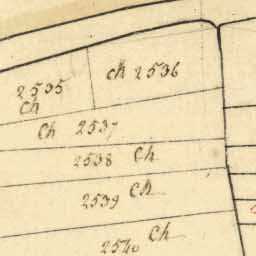 2535
Ch
Ch 2536
Ch 2537
2538 Ch
2539 Ch
2540 Ch